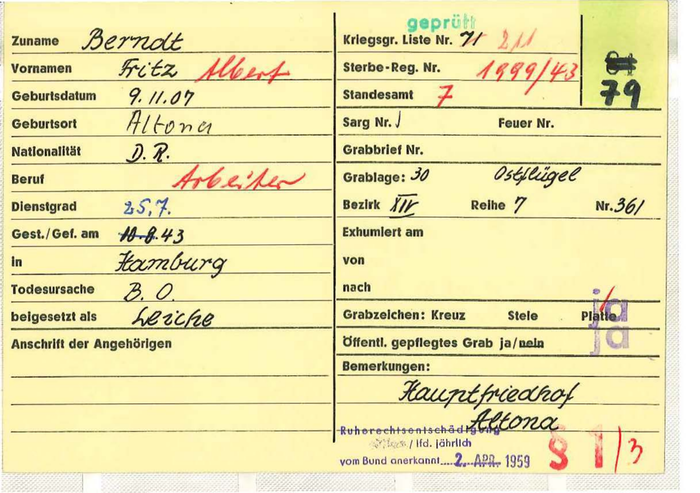 geprüft
Zuname Berndt
Vornamen Fritz Albert
Geburtsdatum 9.11.07
Geburtsort Altona
Nationalität D.R.
Beruf Arbeiter
Dienstgrad 25.7.
Gest./Gef. am 10.8.43
in Hamburg
Todesursache B.O.
beigesetzt als Leiche
Anschrift der Angehörigen
Kriegsgr. Liste Nr. 71 211
Sterbe-Reg. Nr. 1999/43
Standesamt 7
79
Sarg Nr. Feuer Nr.
Grabbrief Nr.
Grablage: 30 Ostflügel
Bezirk XIV Reihe 7 Nr. 361
Exhumiert am
von
nach
ja
Grabzeichen: Kreuz Stele Platte
Öffentl. gepflegtes Grab ja/nein ja
Bemerkungen:
Hauptfriedhof
Altona
Ruherechtsentschädigung
/ lfd. jährlich
vom Bund anerkannt 2. APR. 1959
§ 1/3